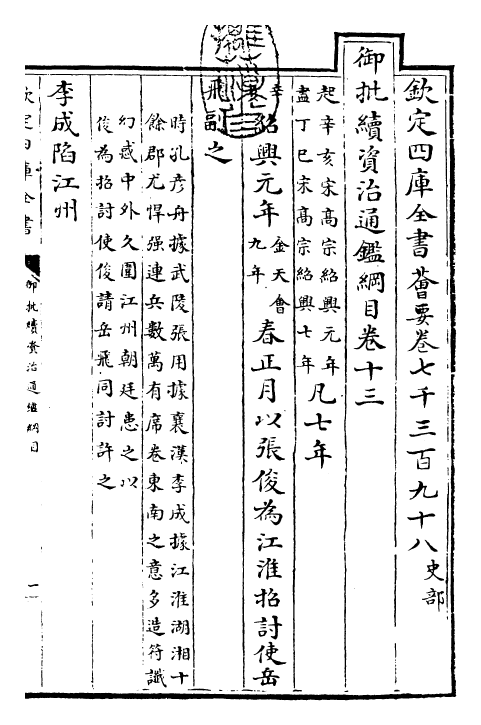 欽定四庫全書薈要卷七千三百九十八 史部
御批續資治通鑑綱目卷十三
起辛亥宋高宗紹興元年
盡丁巳宋高宗紹興七年
凡七年
辛
紹興元年
金天會
九年
春正月以張俊為江淮招討使岳
飛副之
時孔彥舟據武陵張用據襄漢李成據江淮湖湘十
餘郡尤悍强連兵數萬有席卷東南之意多造符讖
幻惑中外久圍江州朝廷患之以
俊為招討使俊請岳飛同討許之
李成陷江州
欽定四庫全書
御批續資治通鑑綱目
一